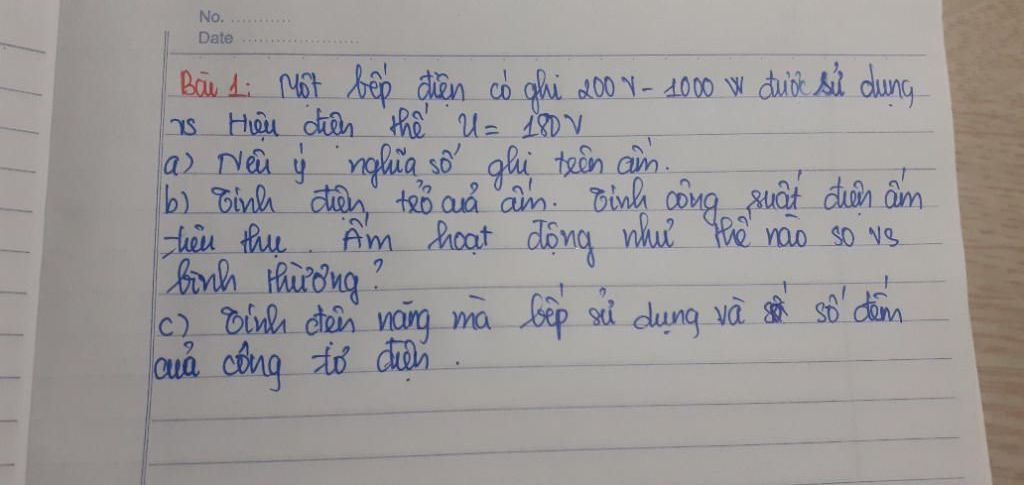 No. ............
Date .....................
Bài 1: Một bếp điện có ghi 200 V - 1000 W được sử dụng
vs Hiệu điện thế U = 180V
a) Nêu ý nghĩa số ghi trên ấm.
b) Tính điện trở quả ấm. Tính công suất điện ấm
tiêu thụ. Ấm hoạt động như thế nào so vs
bình thường?
c) Tính điện năng mà bếp sử dụng và số đếm
quả công tơ điện.